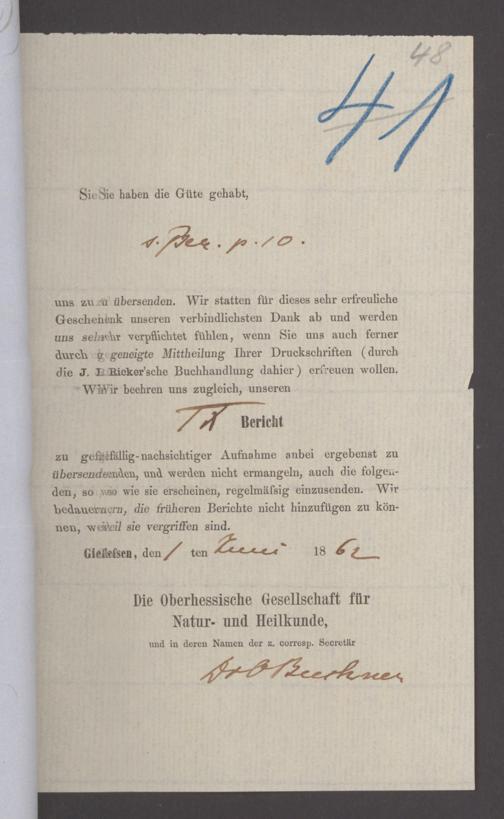 48
41
Sie haben die Güte gehabt,
s. Ber. p. 10.
uns zu übersenden. Wir statten für dieses sehr erfreuliche
Geschenk unseren verbindlichsten Dank ab und werden
uns sehr verpflichtet fühlen, wenn Sie uns auch ferner
durch geneigte Mittheilung Ihrer Druckschriften (durch
die J. Ricker'sche Buchhandlung dahier) erfreuen wollen.
Wir beehren uns zugleich, unseren
Bericht
zu gefällig-nachsichtiger Aufnahme anbei ergebenst zu
übersenden, und werden nicht ermangeln, auch die folgen-
den, so wie sie erscheinen, regelmäfsig einzusenden. Wir
bedauern, die früheren Berichte nicht hinzufügen zu kön-
nen, weil sie vergriffen sind.
Giefsen, den 1 ten Juni 1862
Die Oberhessische Gesellschaft für
Natur- und Heilkunde,
und in deren Namen der z. corresp. Secretär
Dr O Buchner